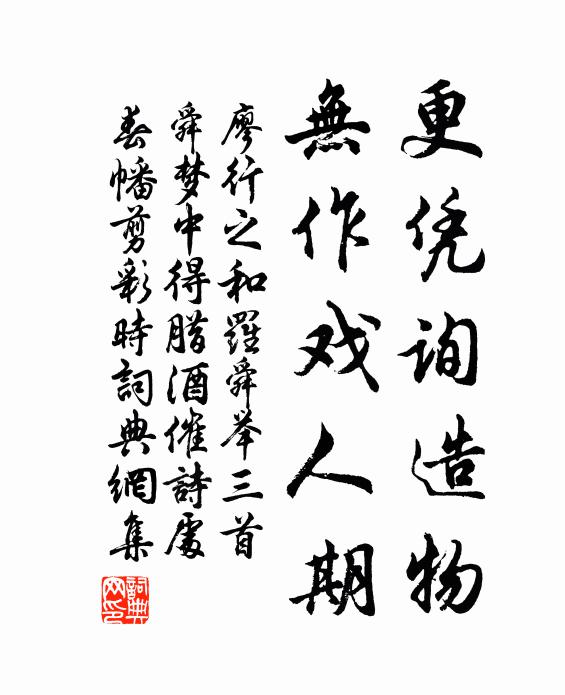 更凭询造物
無作戏人期
廖行之和羅舜举三首
舜梦中得腊酒催詩處
春幡剪彩時詞典網集
詞典網印